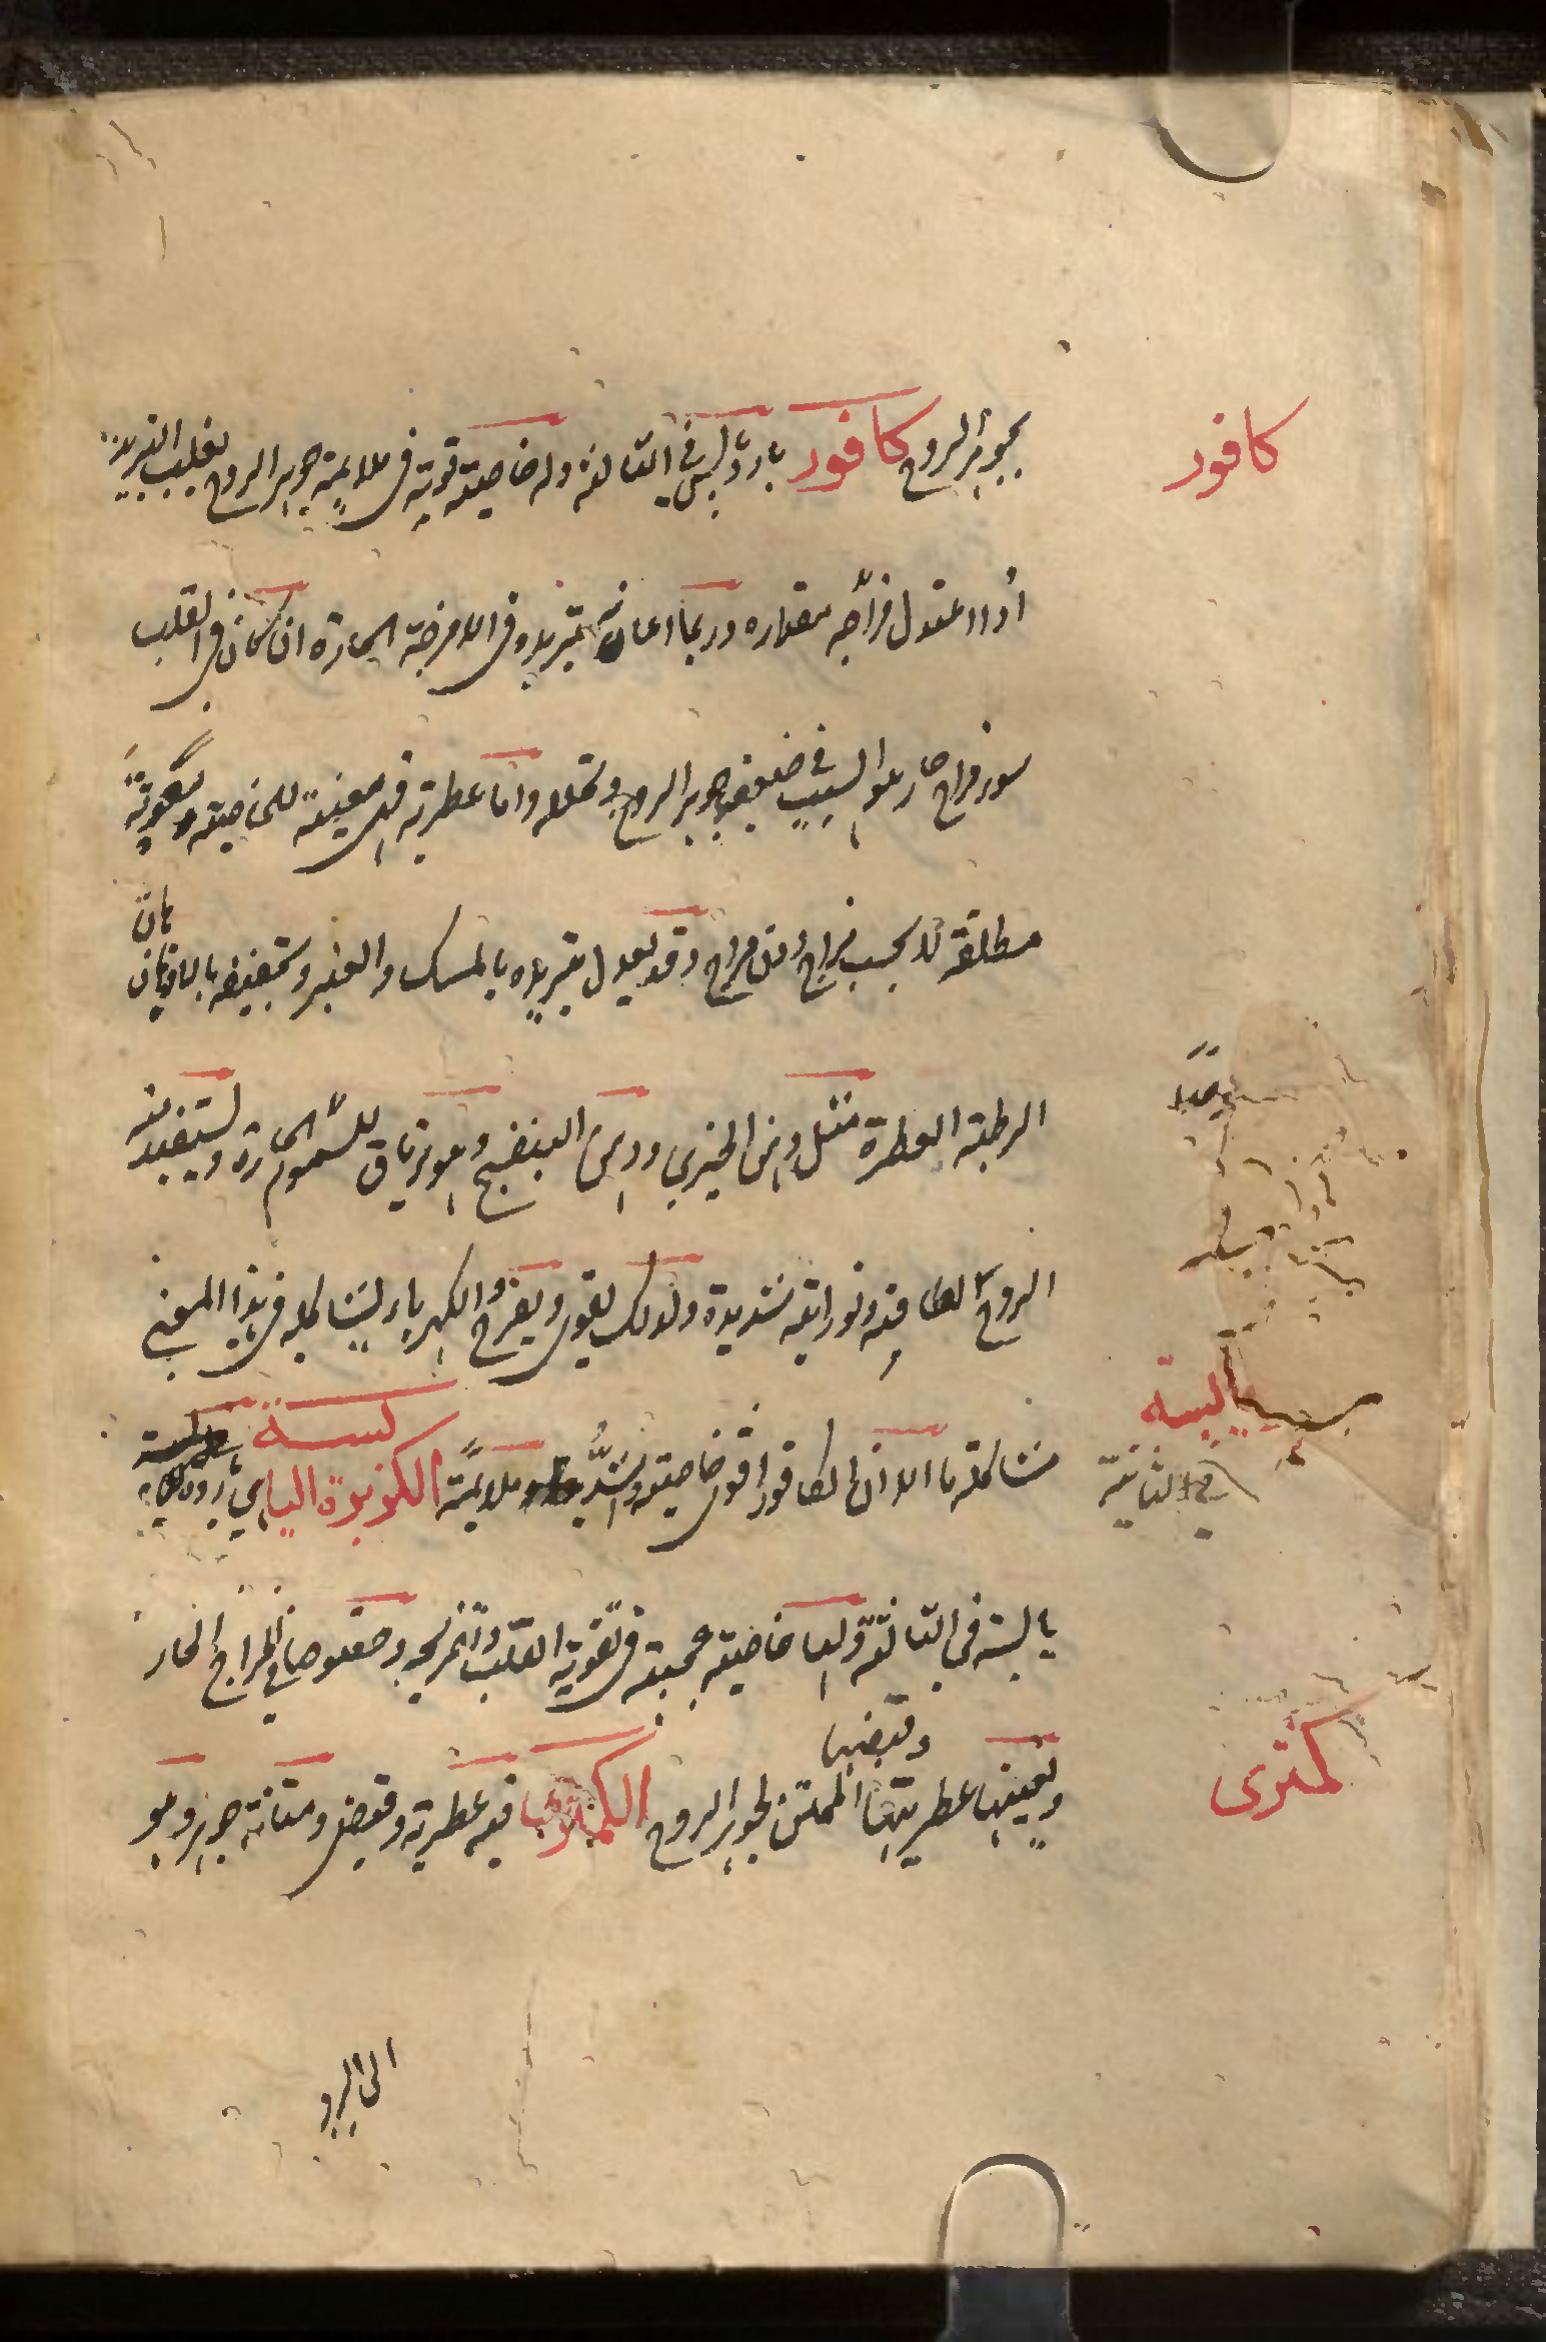 كافور
بجوهر الروح كافور بارد يابس في الثالثة وله خاصية قوية في ملايمة جوهر الروح يغلب التبريد
اذا اعتدل مزاجه بمقداره وربما اعانه تبريده في الامزجة الحارة ان كان في القلب
سوء مزاج حار هو السبب في ضعف جوهر الروح وتحلله واما عطريته فهي معينة للخاصية ومقوية
مطلقة لا بحسب مزاج دون مزاج وقد يعدل تبريده بالمسك والعنبر وتجفيفه بالادهان
هان
الرطبة العطرة مثل دهن الخيري ودهن البنفسج وهو ترياق للسموم الحارة ويستفيد منه
الروح لطافة ونورانية شديدة ولذلك يقوى ويفرح والكهرباء يشاكله في هذا المعنى
مشاكلة ما الا ان الكافور اقوى خاصية واشد ملايمة الكزبرة اليابسة باردة
في الثانية
يابسة في الثالثة ولها خاصية عجيبة في تقوية القلب وتفريحه وخصوصا في المزاج الحار
كمثرى
وتعينها عطريتها وقبضها الممتن لجوهر الروح الكمثرى فيه عطرية وقبض ومتانة جوهر وهو
الى البرد